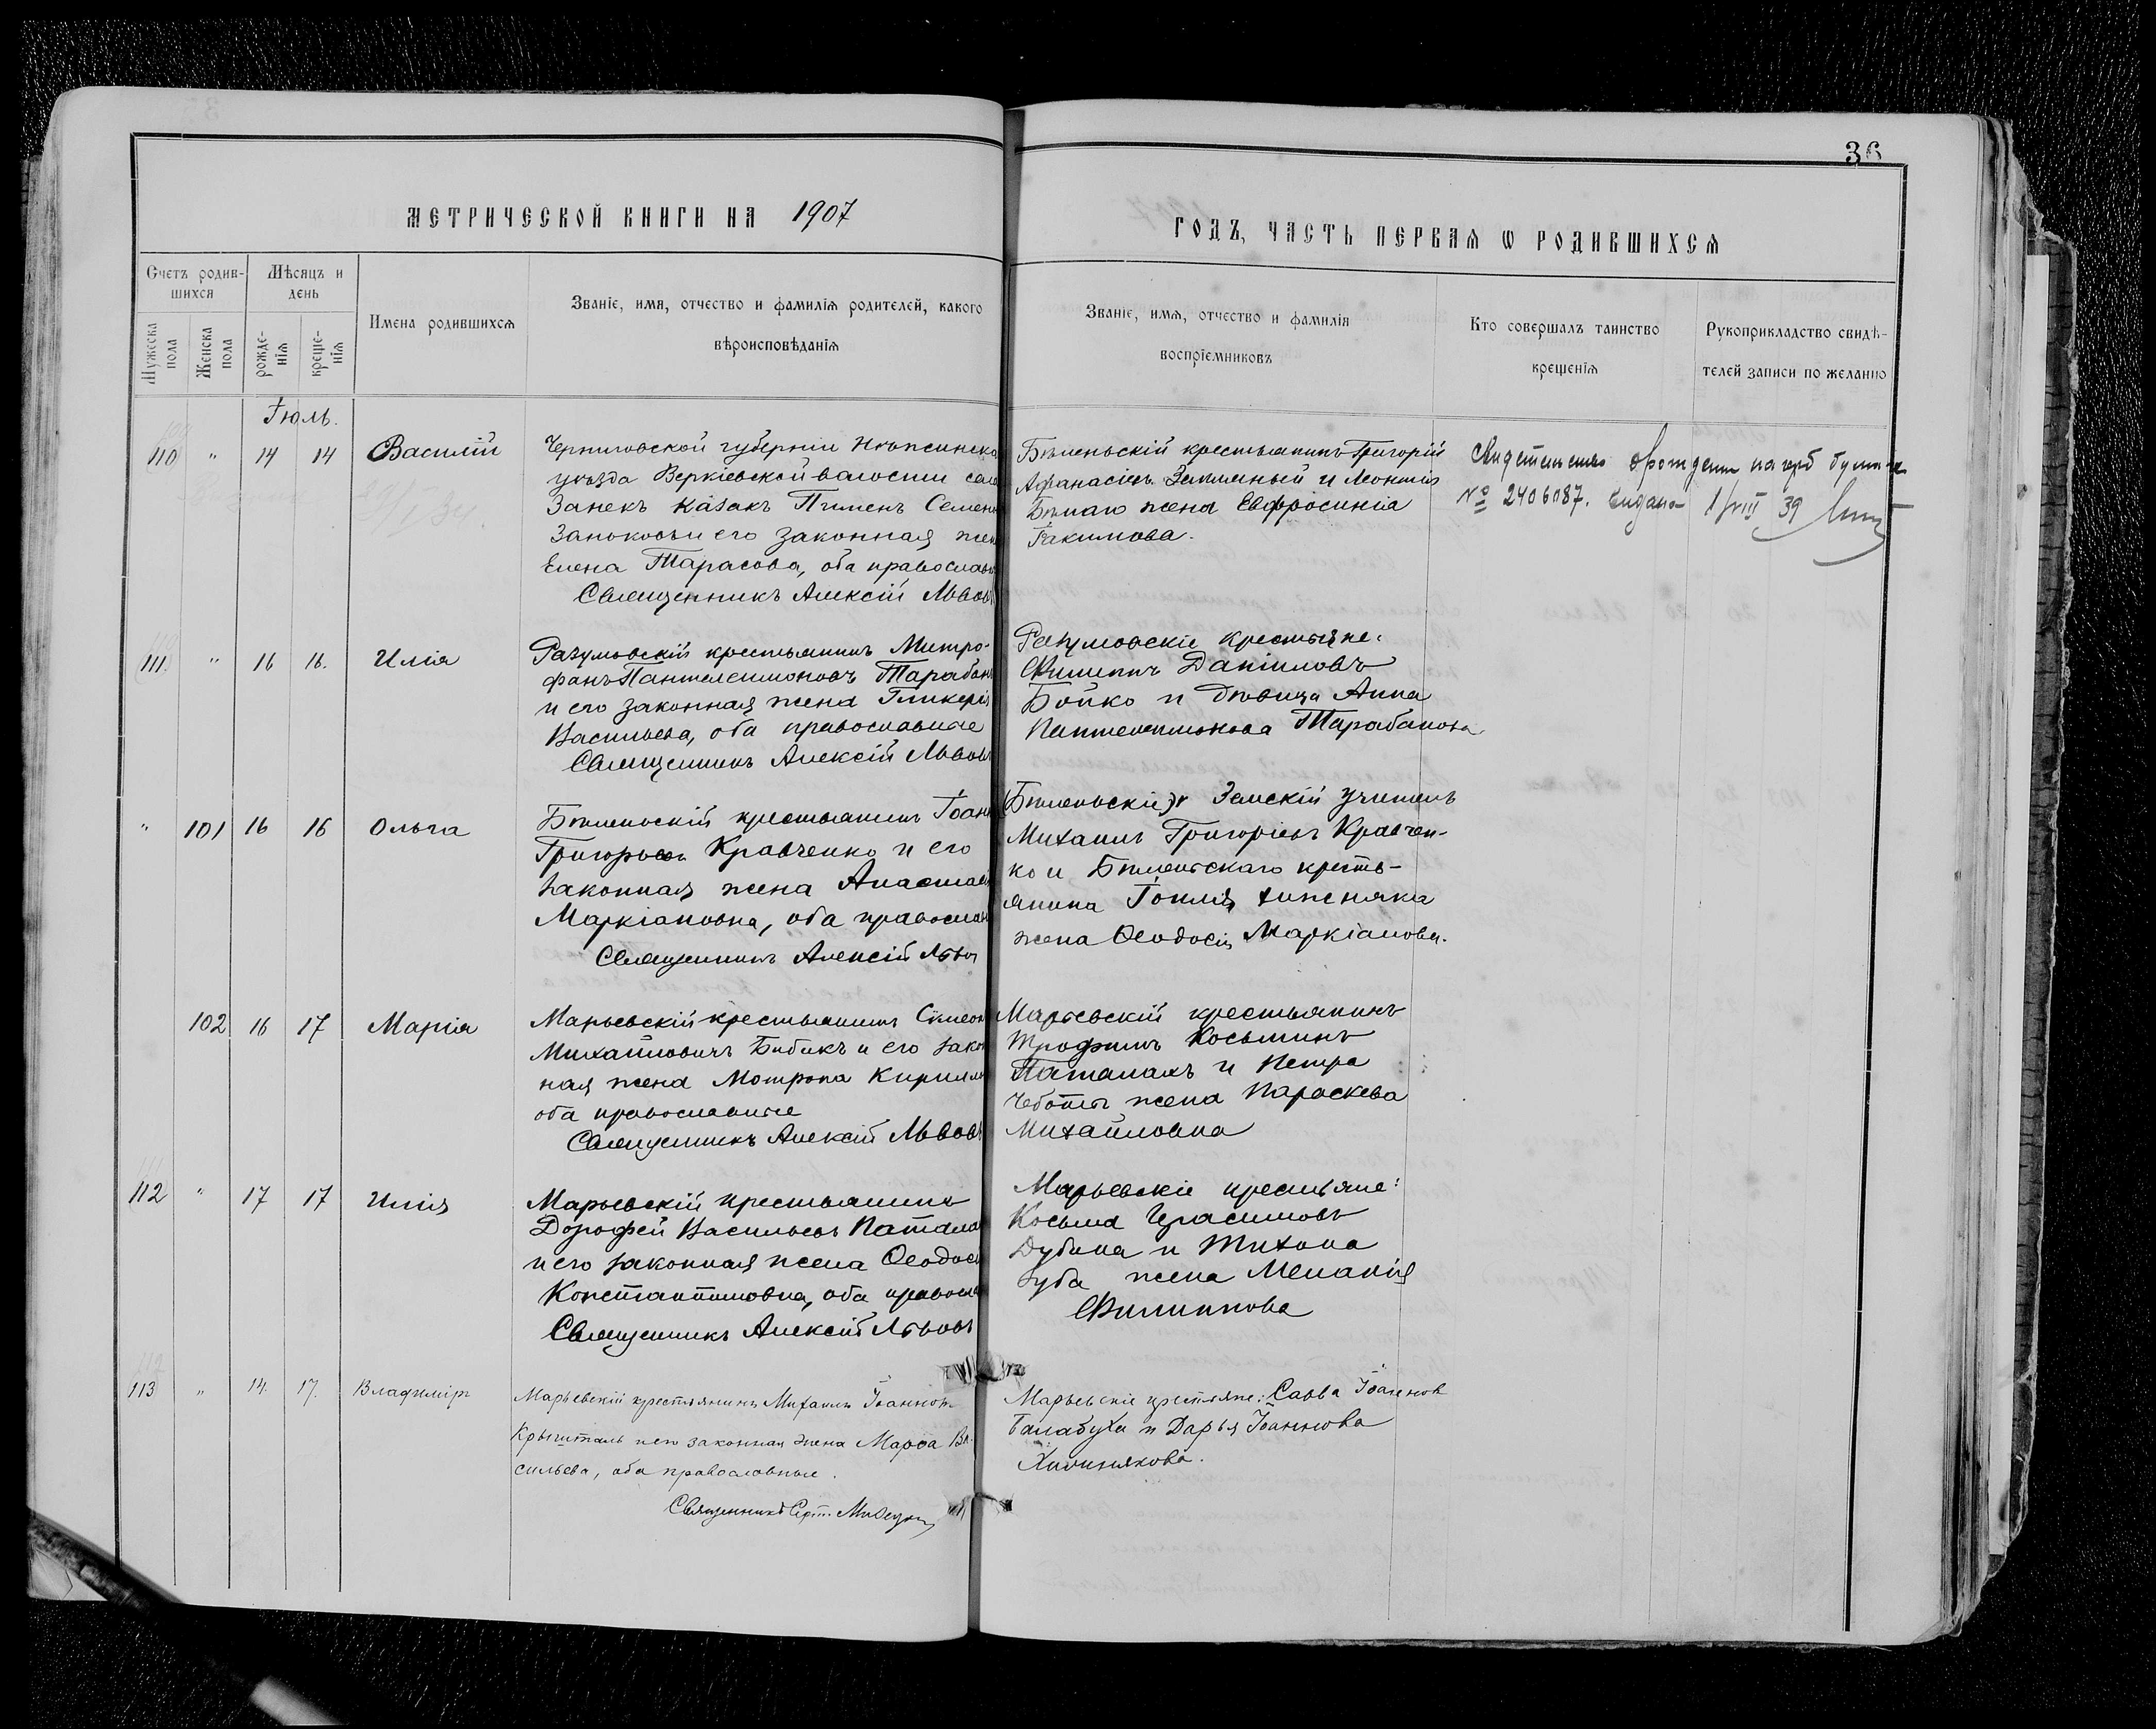 36
МЕТРИЧЕСКОЙ КНИГИ НА 1907
ГОДЪ, ЧАСТЬ ПЕРВАЯ Ѡ РОДИВШИХСЯ
Счетъ родив-
шихся
Мужеска пола
Женска пола
Мѣсяцъ и
день
рожде-
нія
креще-
нія
Имена родившихся
Званіе, имя, отчество и фамилія родителей, какого
вѣроисповѣданія
Званіе, имя, отчество и фамилія
воспріемниковъ
Кто совершалъ таинство
крещенія
Рукоприкладство свидѣ-
телей записи по желанію
Іюль.
110 " 14 14 Василій
Черниговской губерніи Нѣжинска
уѣзда Веркіевской волости сел
Занекъ казакъ Пименъ Семен
его законная жен
Елена Тарасова, оба православн
Священникъ Алексій Львовъ
Бѣленьскій крестьянинъ Григорій
Афанасіевъ и Леонтія
жена Евфросинія
Іакимова.
Свидетельство о рождении на герб бумаге
№ 2406087. выдано 1/VIII 39
111 " 16 16. Илія
Разумовскій крестьянинъ Митро-
фанъ Пантелеимоновъ Тарабан
и его законная жена Гликерія
Васильева, оба православные
Священникъ Алексій Львовъ
Разумовскіе крестьяне:
Филиппъ Даніиловъ
Бойко и дѣвица Анна
Пантелеимонова Тарабанова
" 101 16 16 Ольга
Бѣленьскій крестьянинъ Іоанн
Григорьевъ Кравченко и его
законная жена Анастас
Маркіановна, оба православн
Священникъ Алексій Львов
Земскій учитель
Михаилъ Григоріевъ Кравчен-
ко и Бѣленьскаго кресть-
янина
жена Ѳеодосія Маркіанова.
102 16 17 Марія
Марьевскій крестьянинъ Сѵмеон
Михайловичъ Бибикъ и его закон
ная жена Мотрона Кирилл
оба православные
Священникъ Алексій Львовъ
Марьевскій крестьянинъ
Трофимъ Косьминъ
Паталахъ и Петра
жена Параскева
Михайловна
112 " 17 17 Илія
Марьевскій крестьянинъ
Дорофей Васильевъ Патала
и его законная жена Ѳеодос
Константиновна, оба правосл
Священникъ Алексій Львовъ
Марьевскіе крестьяне:
Косьма Герасимовъ
Дубина и Тихона
Зуба жена Меланія
Филиппова
113 " 14. 17. Владиміръ
Марьевскій крестьянинъ Михаилъ Іоаннов
Крышталь и его законная жена Марѳа Ва-
сильева, оба православные.
Священникъ
Марьевскіе крестьяне: Савва Іоаннов
Балабуха и Дарья Іоаннова